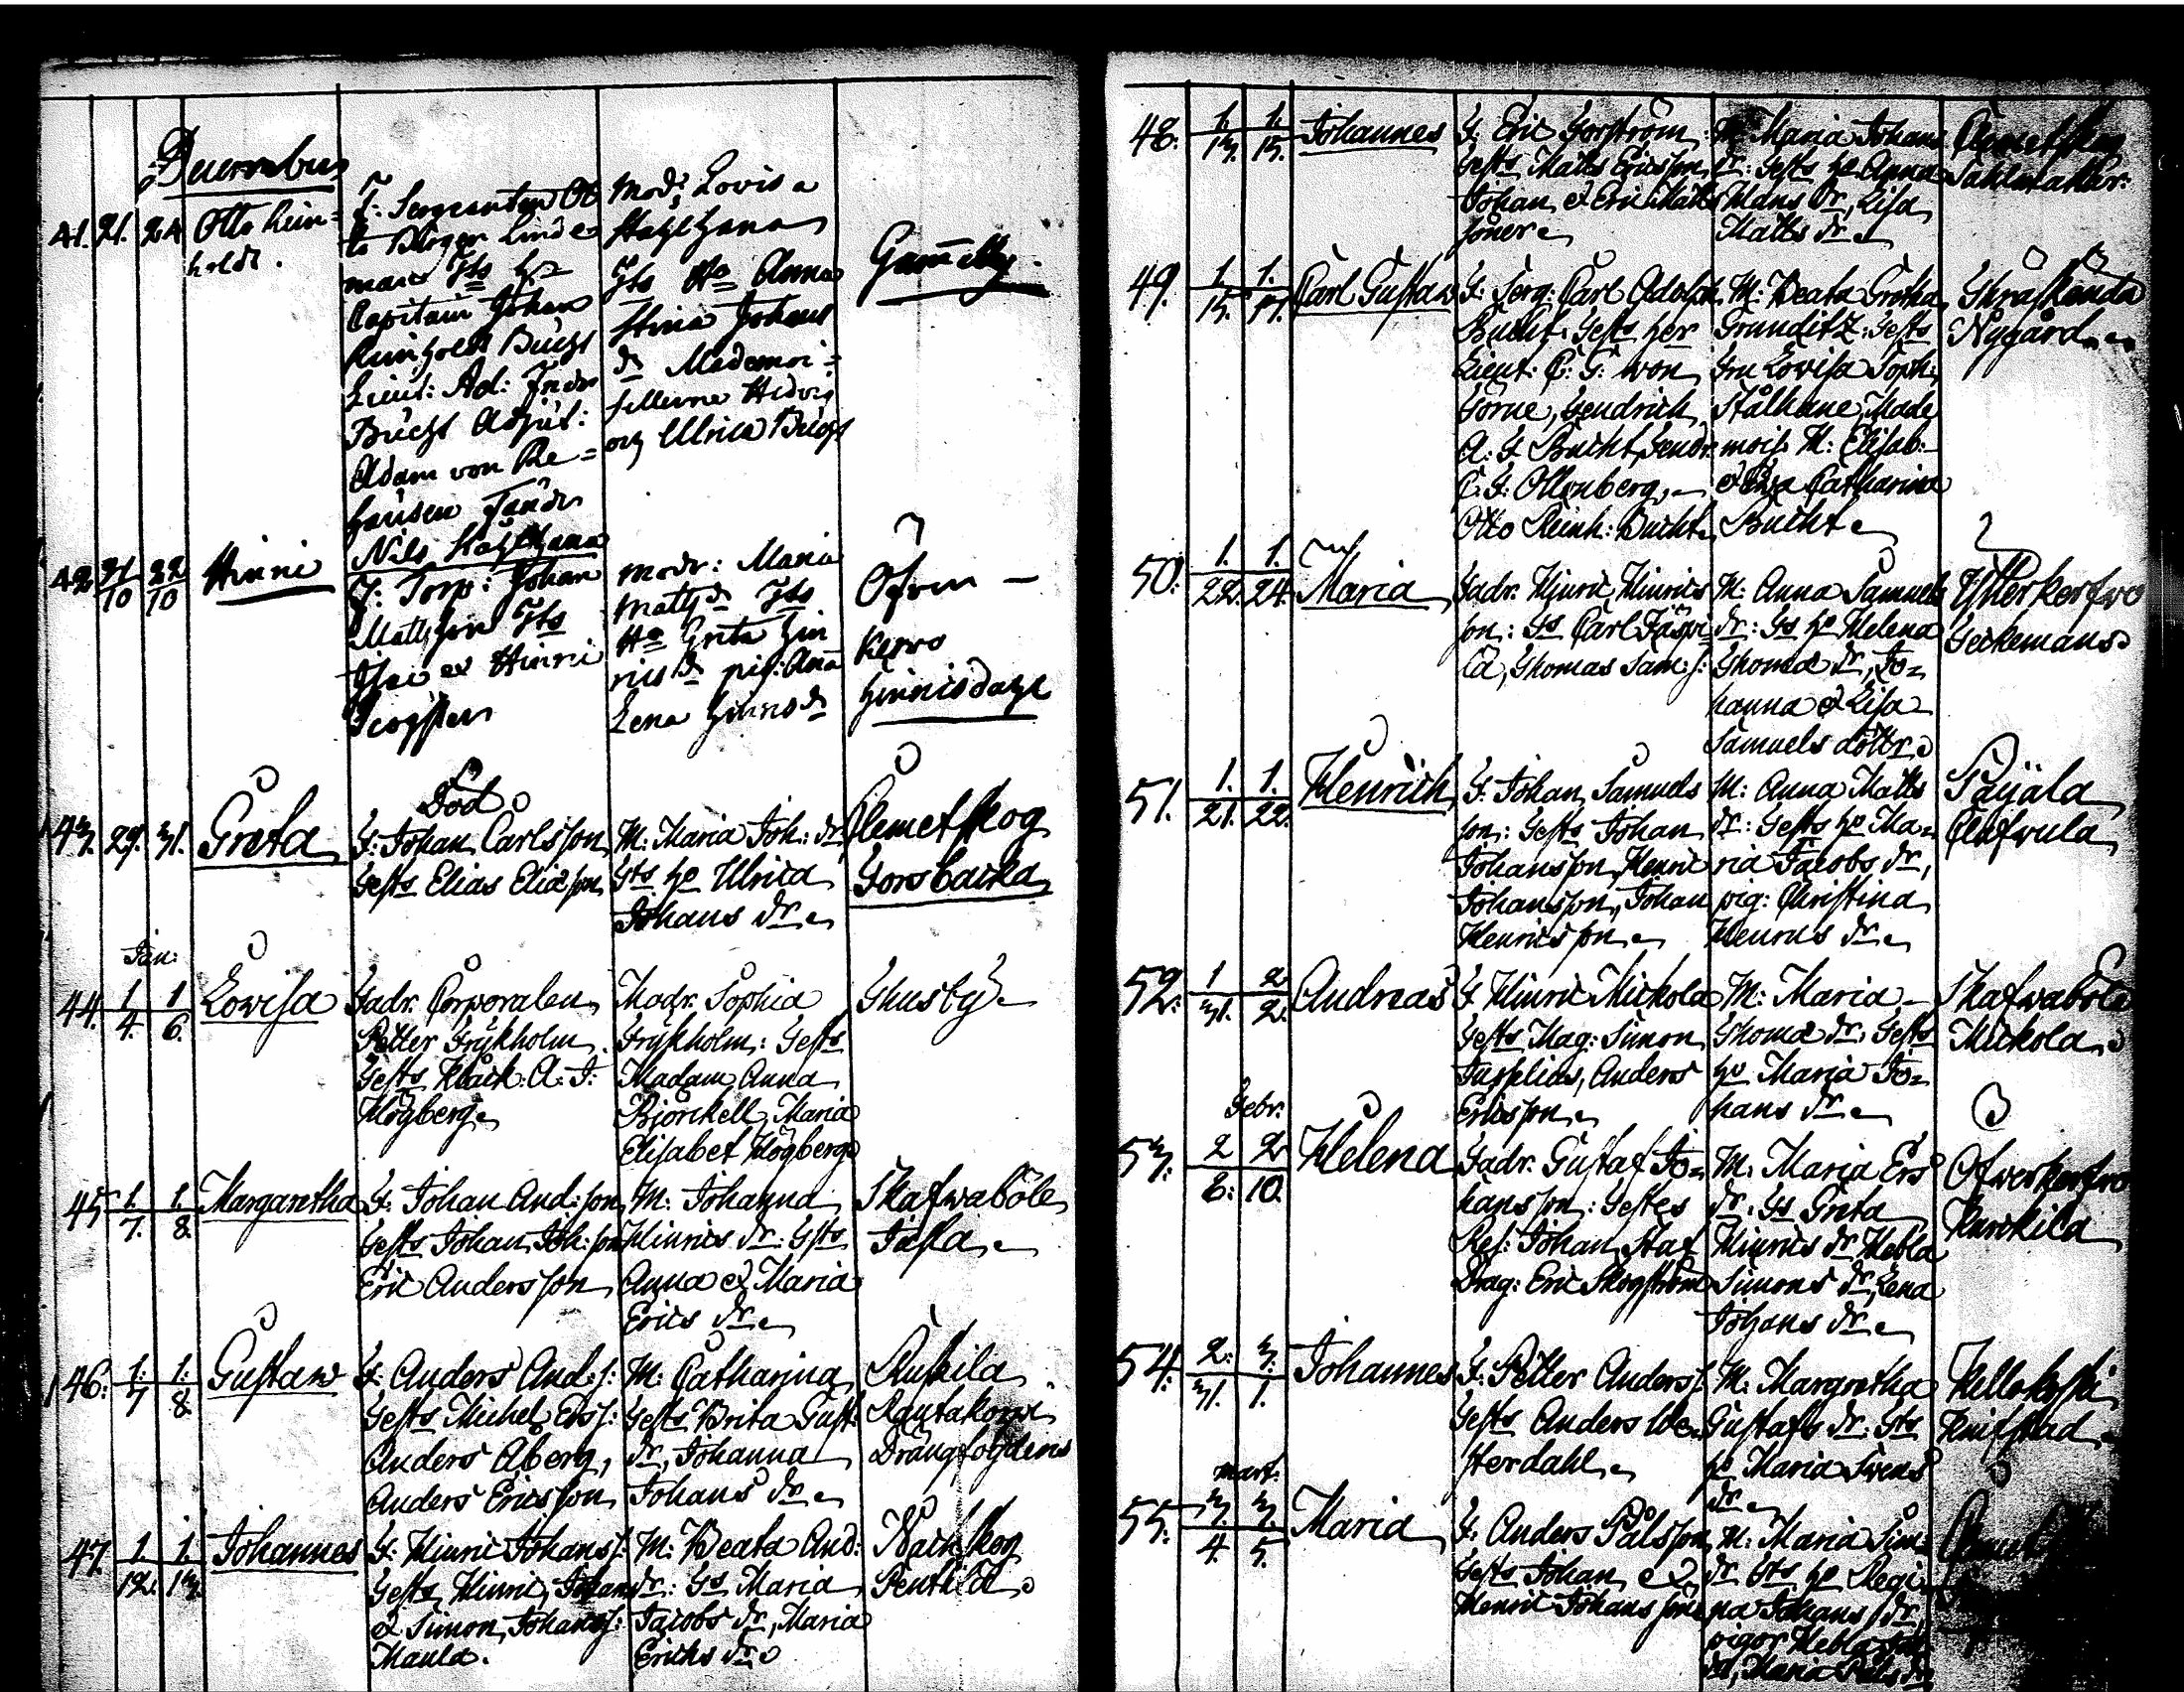 Decembris
41. 21. 24 Otto Rein=
holdt.
F: Sergeanten Ot
to Birger Linde
man Fts Hr
Capitain Johan
Reinholdt Bucht
Lieut: Ad: Fredr
Bucht Adjut:
Adam von Re=
hausen Fändr
Nils Stahlhana
Modr Lovisa
Stahlhana
Fts Ho Anna
Stina Johans
dr Mademoi=
sellerne Hedvig
och Ulrica Bucht
Gammelby
42 21/10 22/10 Hinric
F: Torp: Johan
Mattsson Fts
et Hinric
modr: Maria
Matts dr Fts
Ho Greta Hin
rics dr pig: Anna
Lena Hinrics dr
Öfver
Kerwo
Hinricsdahl
43. 29. 31. Greta
Död
F: Johan Carlsson
Gefts Elias Eliæson
M: Maria Joh: dr
Gts ho Ulrica
Johans dr
Clemetskog
Forsbacka
Jan:
44. 1/4. 1/6. Lovisa
Fadr. Corporalen
Petter Frykholm
Gefts Klåck: A: J:
Högberg
Modr. Sophia
Frykholm: Gefts
Madam Anna
Björckell, Maria
Elisabet Högberg
Thusby
45 1./7. 1./8. Margaretha
F: Johan And:son
Gefts Johan Joh:son
Eric Andersson
M: Johanna
Hinrics dr: Gfts
Anna et Maria
Erics dr
Skafwaböle
46. 1:/7 1:/8. Gustaw
F: Anders And:s:
Gefts Michel Ers s:
Anders Åberg,
Anders Ericsson
M: Catharina
Gefts Brita Gust:
dr, Johanna
Johans dr
Ruskila
Rautakorpi
Drängfogdens
47. 1./12. 1./13. Johannes
F: Hinric Johans s:
Gefts Hinric, Johan
et Simon Johans s:
Maula.
M: Beata And:
dr: Gs Maria
Jacobs dr, Maria
Erichs dr
Nackskog
Penttilä
48. 1./13. 1./15. Johannes
F: Eric Forström
Gefts Matts Ericsson,
Johan et Eric Matts
söner
M: Maria Johans
dr: Gefts ho Anna
Mans dr, Lisa
Matts dr
Clemetskog
49. 1./15. 1./17. Carl Gustaw
F: Serg: Carl Adolph
Bucht: Gefts her
Lieut: C: G: von
Görne, Fendrich
A: F Bucht, Fendr:
C: F: Ollonberg,
Otto Reinh: Bucht
M: Beata Gretha
Grunditz: Gefts
Fru Lovisa Soph:
Stålhane, Made
mois: M: Elisab:
et Catharina
Bucht
Träskända
Nygård
50. 1./22. 1./24. Maria
Fadr. Hinric Hinrics
son: Gs Carl
Thomas Sam: s:
M: Anna Samuels
dr: Gs ho Helena
Thomæ dr, Jo=
hanna et Lisa
Samuels döttr
Ytterkerfwo
Seckemans
51. 1./21. 1./22. Henrich
F: Johan Samuels
son: Gefts Johan
Johansson, Henric
Johansson, Johan
Henricsson
M: Anna Matts
dr: Gefts ho Ma=
ria Jacobs dr,
pig: Christina
Henrics dr
Paijala
52. 1/31. 2/2. Andreas
F: Hinric Mickola
Gefts Mag: Simon
Anders
Ericsson
M: Maria
Thomæ dr, Gefts
ho Maria Jo=
hans dr
Skafwaböle
Mickola
Febr.
53. 2/6: 2/10. Helena
Fadr. Gustaf Jo=
hansson: Gestes
Ref: Johan Staf
Drag: Eric Skogström
M: Maria Ers
dr. Gs Greta
Hinrics dr Hebla
Simons dr, Lena
Johans dr
Ofwerkerfwo
54. 2:/31. 3./1. Johannes
F: Petter Anders s:
Gefts Anders We=
sterdahl
M: Margretha
Gustafs dr: Gts
ho Maria Svens
dr
Kellokoski
Knifstad
Mart:
55. 3./4. 3./5. Maria
F: Anders Pålsson
Gefts Johan et
Henric Johans söne
M: Maria Sim:
dr Gts ho Regi=
na Johans dr
pigor Hebla
Maria Påls dr